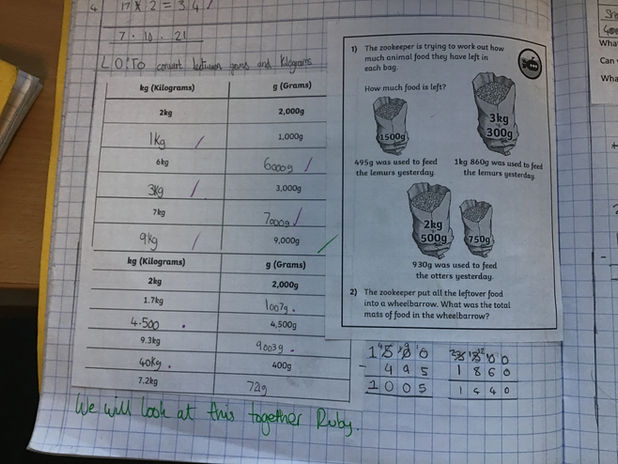 4 17 x 2 = 34
7.10.21
L.O: To convert between grams and kilograms
kg (Kilograms) g (Grams)
2kg 2,000g
1kg 1,000g
6kg 6000g
3kg 3,000g
7kg 7000g
9kg 9,000g
kg (Kilograms) g (Grams)
2kg 2,000g
1.7kg 1007g.
4.500. 4,500g
9.3kg 9003g.
40kg. 400g
7.2kg 72g
We will look at this together Ruby.
1) The zookeeper is trying to work out how
much animal food they have left in
each bag.
How much food is left?
1500g
3kg
300g
495g was used to feed
the lemurs yesterday.
1kg 860g was used to feed
the lemurs yesterday.
2kg
500g
750g
930g was used to feed
the otters yesterday.
2) The zookeeper put all the leftover food
into a wheelbarrow. What was the total
mass of food in the wheelbarrow?
- 4 9 5
1 0 0 5
- 1 8 6 0
1 4 4 0
What
Can
Wha